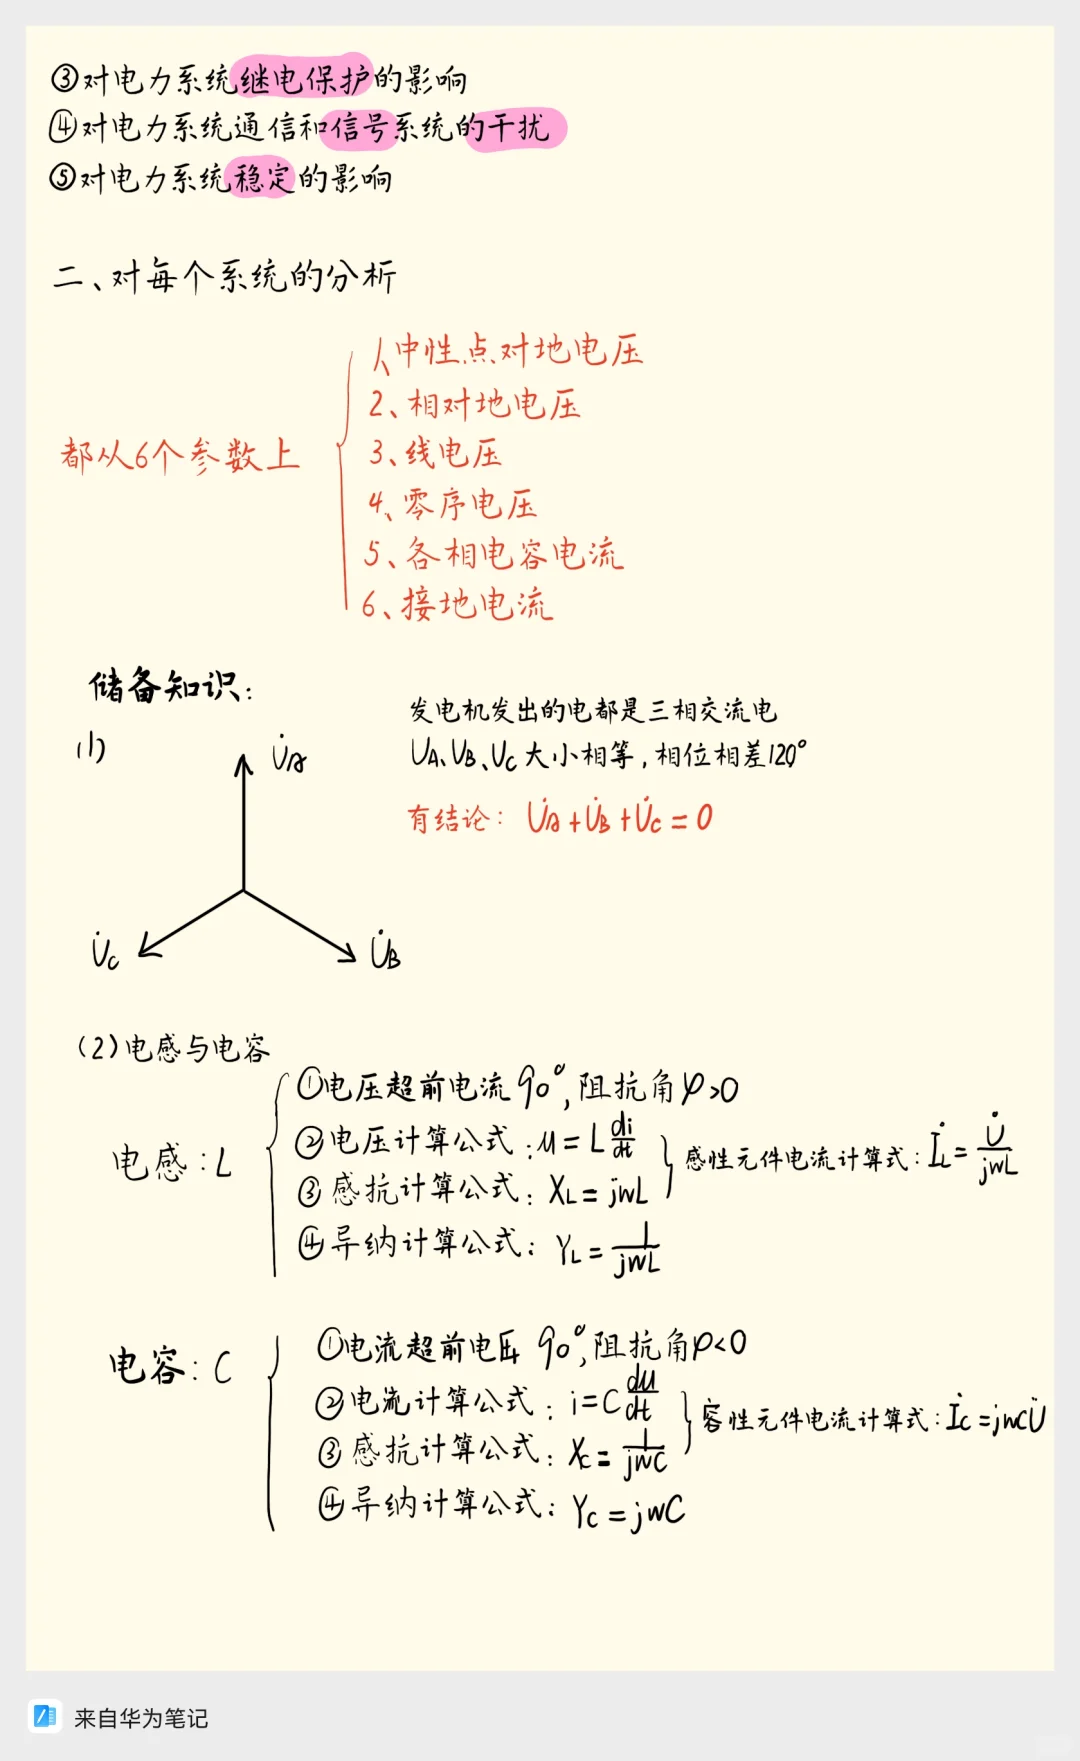 ③对电力系统继电保护的影响
④对电力系统通信和信号系统的干扰
⑤对电力系统稳定的影响
二、对每个系统的分析
都从6个参数上
1、中性点对地电压
2、相对地电压
3、线电压
4、零序电压
5、各相电容电流
6、接地电流
储备知识:
(1)
U̇A
U̇C
U̇B
发电机发出的电都是三相交流电
UA、UB、UC大小相等,相位相差120°
有结论: U̇A+U̇B+U̇C=0
(2)电感与电容
电感:L
①电压超前电流90°,阻抗角φ>0
②电压计算公式:u=L di/dt
③感抗计算公式:XL=jwL
感性元件电流计算式:İL=U̇/jwL
④异纳计算公式:YL=1/jwL
电容:C
①电流超前电压90°,阻抗角φ<0
②电流计算公式:i=C du/dt
③感抗计算公式:Xc=1/jwC
容性元件电流计算式:İc=jwCU̇
④异纳计算公式:Yc=jwC
来自华为笔记